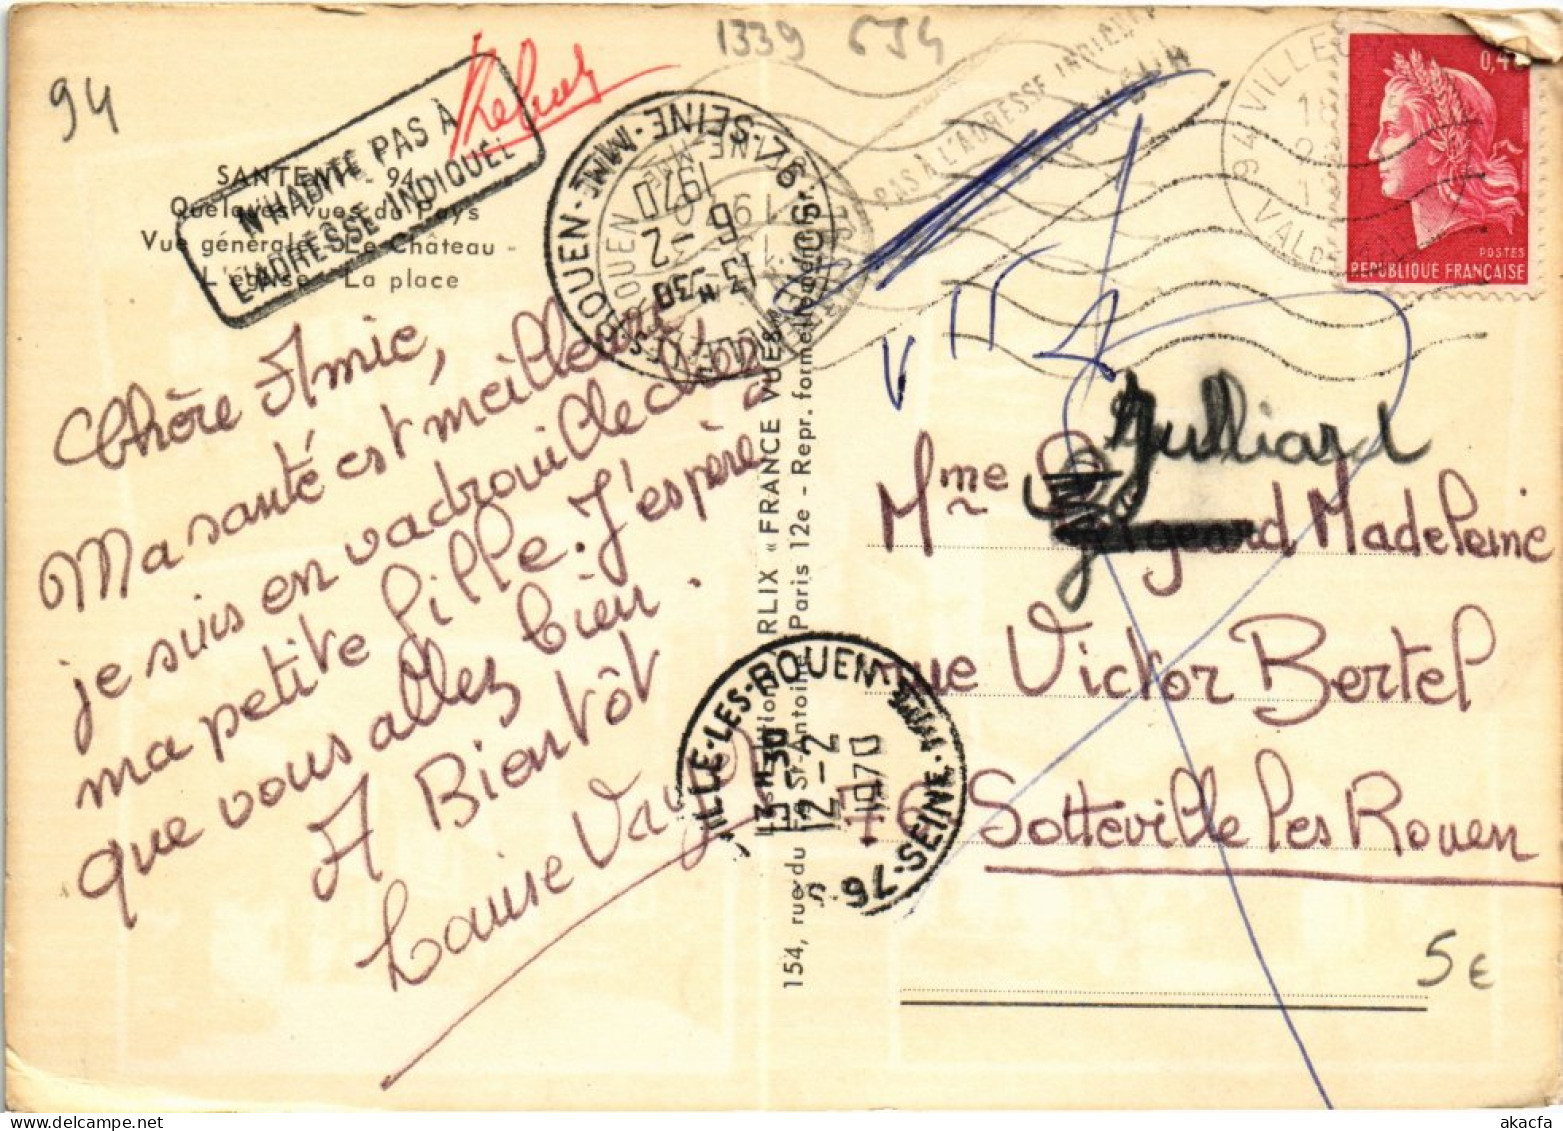 1339 654
94
SANTENY - 94
Quelques vues du Pays
Vue générale - Le Château -
L'église - La place
N'HABITE PAS À
L'ADRESSE INDIQUÉE
Chère Amie,
Ma santé est meilleure,
je suis en vadrouille chez
ma petite fille. J'espère
que vous allez bien.
A Bientôt
Louise
SEINE-MME
76
13 H 30
6 - 2
1970
PAS À L'ADRESSE INDIQUÉE
« FRANCE VUES »
154, rue du Fg St-Antoine Paris 12e - Repr. formellement
VILLE-LES-ROUEN
13 H 30
12 - 2
1970
76-SEINE-MME
94 VILLE
18
VAL DE
0,40
POSTES
REPUBLIQUE FRANÇAISE
Julliard
Mme Madeleine
rue Victor Bertel
76 Sotteville les Rouen
5 €
akacfa